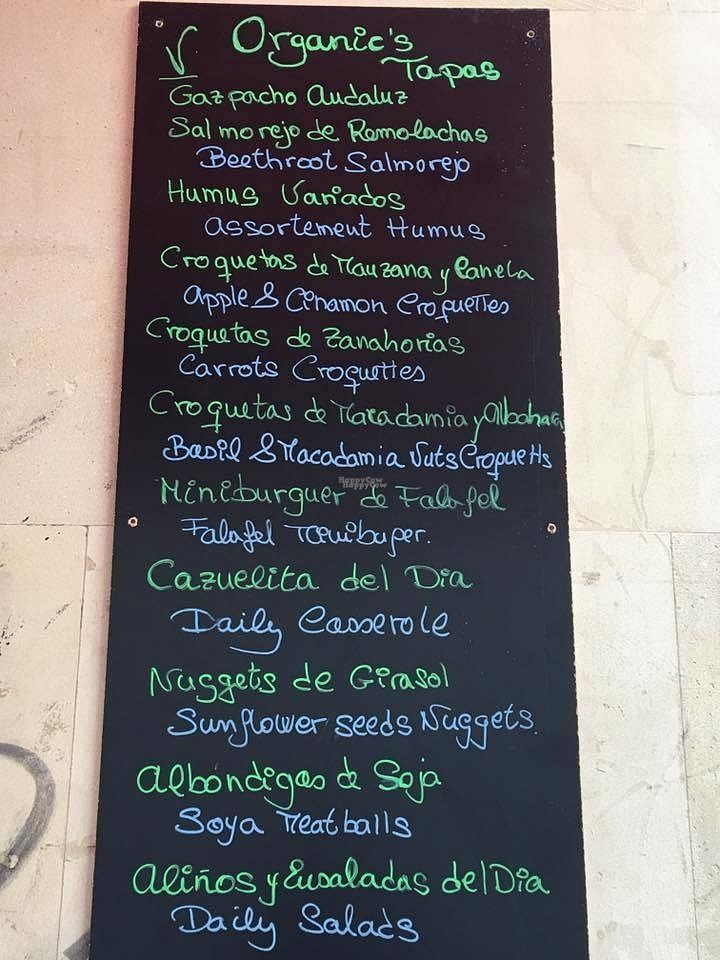 V Organic's
Tapas
Gazpacho Andaluz
Salmorejo de Remolachas
Beethroot Salmorejo
Humus Variados
Assortement Humus
Croquetas de Manzana y Canela
Apple & Cinamon Croquettes
Croquetas de Zanahorias
Carrots Croquettes
Croquetas de Macadamia y Albahaca
Basil & Macadamia Nuts Croquetts
HappyCow
HappyCow
Miniburguer de Falafel
Falafel
Cazuelita del Dia
Daily Casserole
Nuggets de Girasol
Sunflower seeds Nuggets.
Albondigas de Soja
Soya Meatballs
Aliños y Ensaladas del Dia
Daily Salads